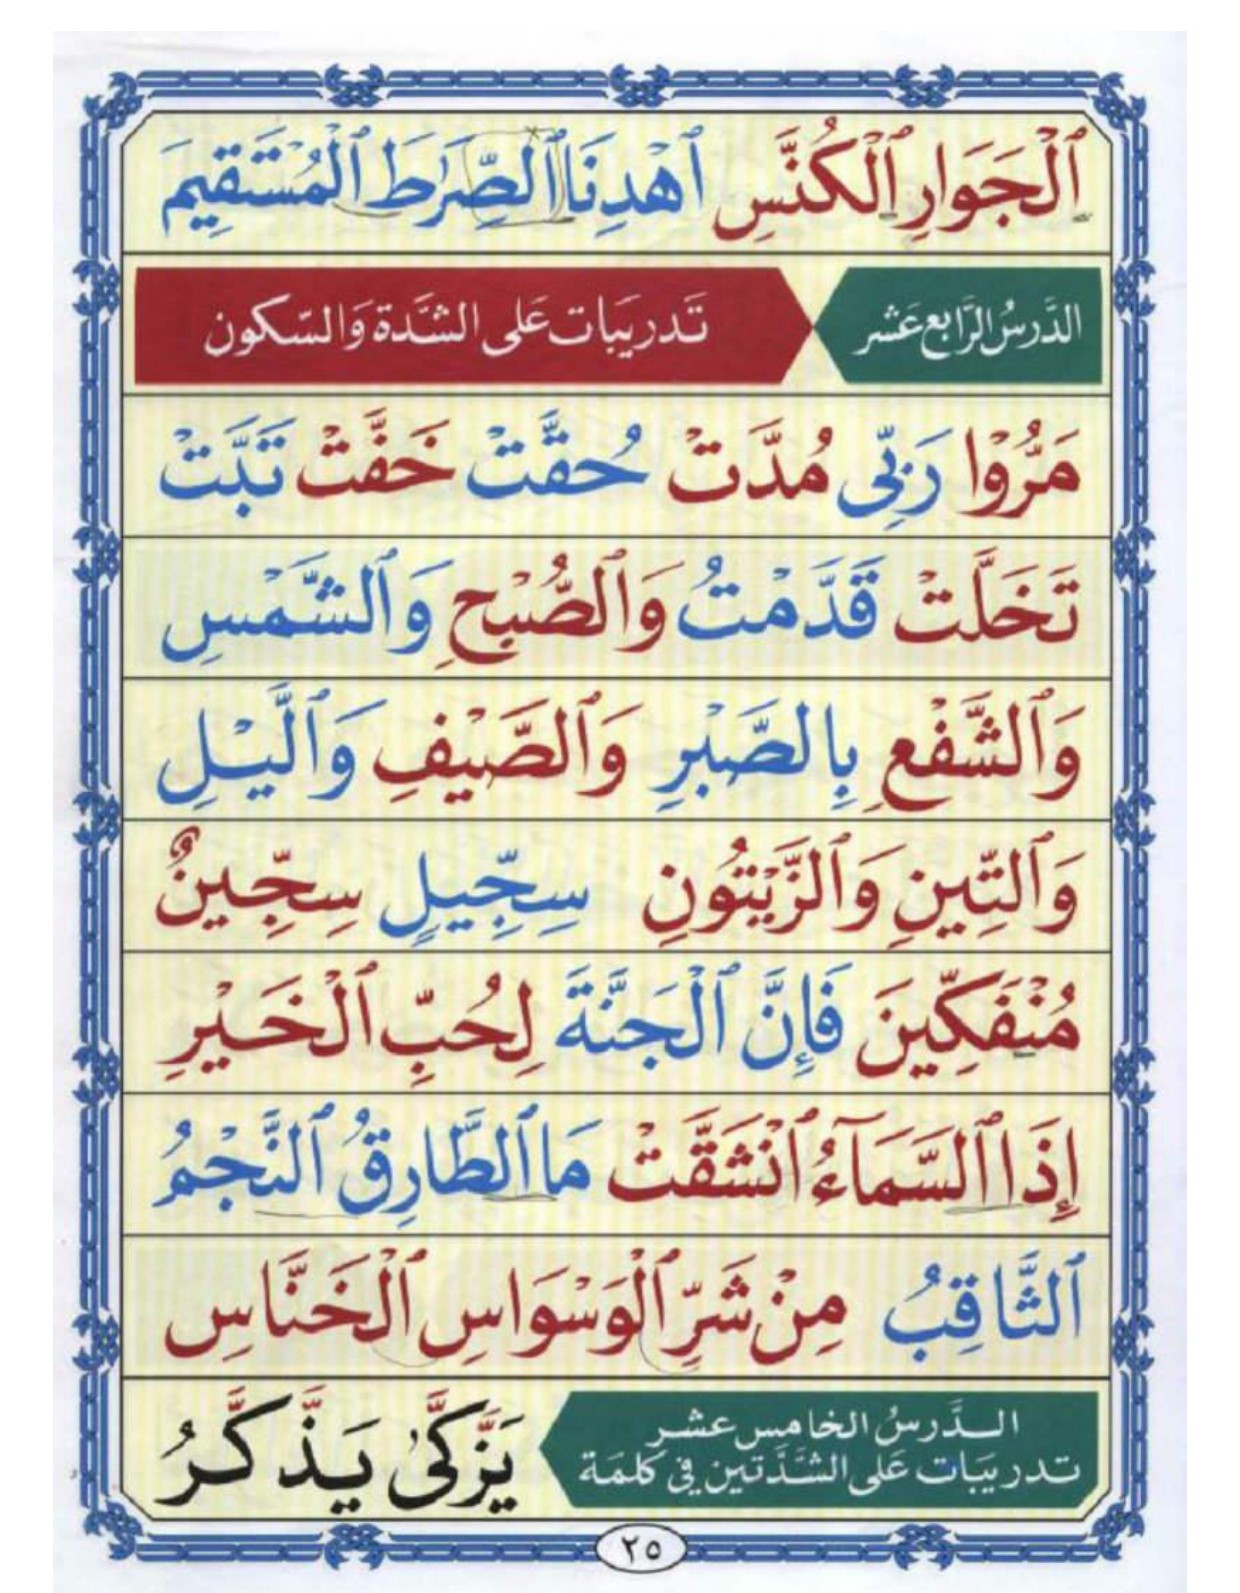 ٱلْجَوَارِ ٱلْكُنَّسِ ٱهْدِنَا ٱلصِّرَٰطَ ٱلْمُسْتَقِيمَ
الدَّرسُ الرَّابع عَشر تَدريبَات عَلى الشَّدة وَالسّكون
مَرُّوْا رَبِّى مُدَّتْ حُقَّتْ خَفَّتْ تَبَّتْ
تَخَلَّتْ قَدَّمْتُ وَٱلصُّبْحِ وَٱلشَّمْسِ
وَٱلشَّفْعِ بِالصَّبْرِ وَٱلصَّيْفِ وَٱلَّيْلِ
وَٱلتِّينِ وَٱلزَّيْتُونِ سِجِّيلٍ سِجِّينٌ
مُنْفَكِّينَ فَإِنَّ ٱلْجَنَّةَ لِحُبِّ ٱلْخَيْرِ
إِذَا ٱلسَّمَآءُ ٱنْشَقَّتْ مَا ٱلطَّارِقُ ٱلنَّجْمُ
ٱلثَّاقِبُ مِنْ شَرِّ ٱلْوَسْوَاسِ ٱلْخَنَّاسِ
الـدَّرسُ الخامس عشر
تـدريبَات عَلى الشَّدَّتين في كلمَة
يَزَّكَّىٰ يَذَّكَّرُ
٢٥